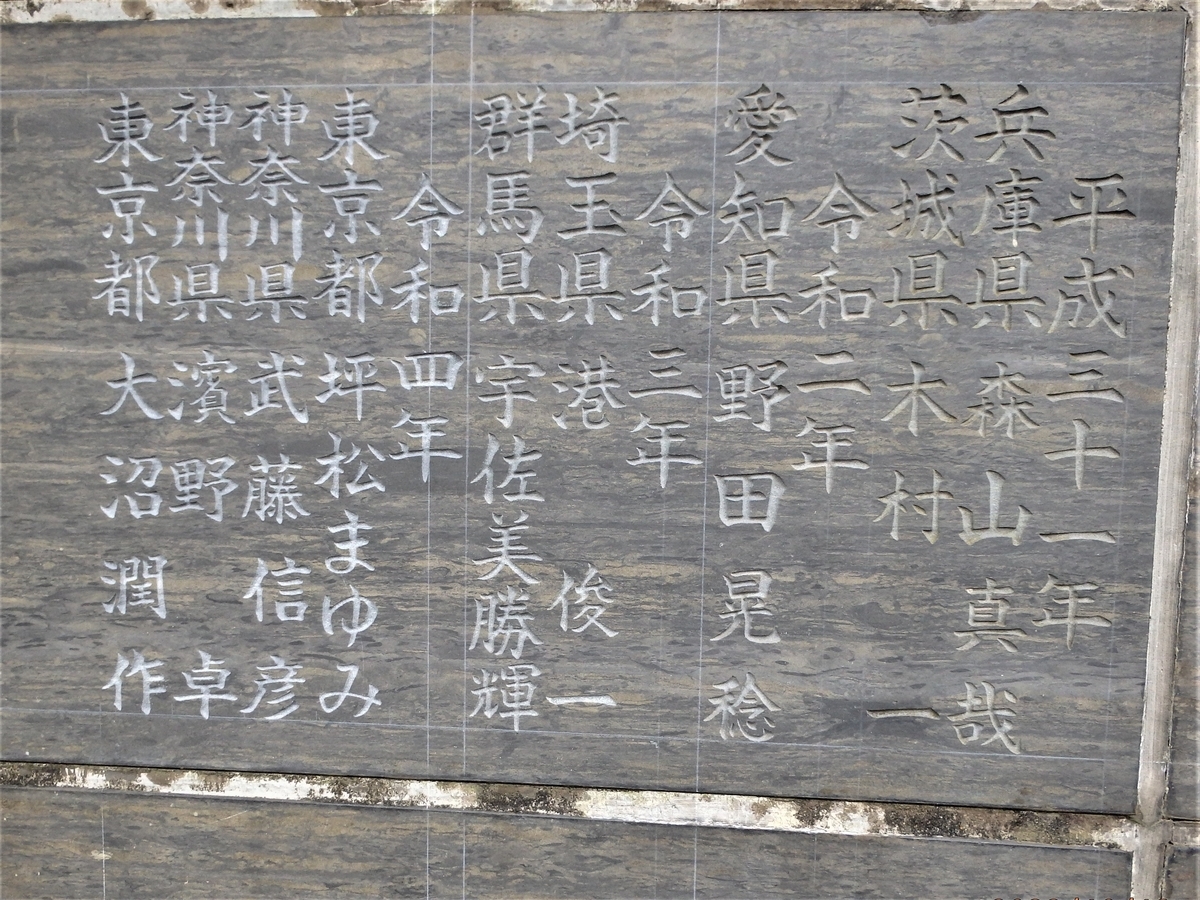 平成三十一年
兵庫県 森山真哉
茨城県 木村 一
令和二年
愛知県 野田晃稔
令和三年
埼玉県 港 俊一
群馬県 宇佐美勝輝
令和四年
東京都 坪松まゆみ
神奈川県 武藤信彦
神奈川県 濱野 卓
東京都 大沼潤作